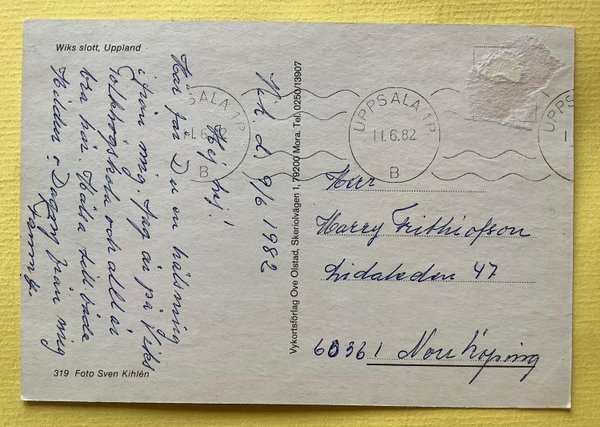 Wiks slott, Uppland
Vik d. 9/6 1982
Hej, hej!
Här får Du en hälsning
ifrån mig. Jag är på Viks
folkhögskola och allt är
bra här. Hälsa till både
Hilda o Dagny från mig
319 Foto Sven Kihlén
Vykortsförlag Ove Olstad, Skeriolvägen 1, 79200 Mora. Tel. 0250/13907
UPPSALA 1P
11.6.82
B
UPPSALA 1P
11.6.82
B
UPPSALA
Herr
Harry Frithiofson
Lidaleden 47
60361 Norrköping